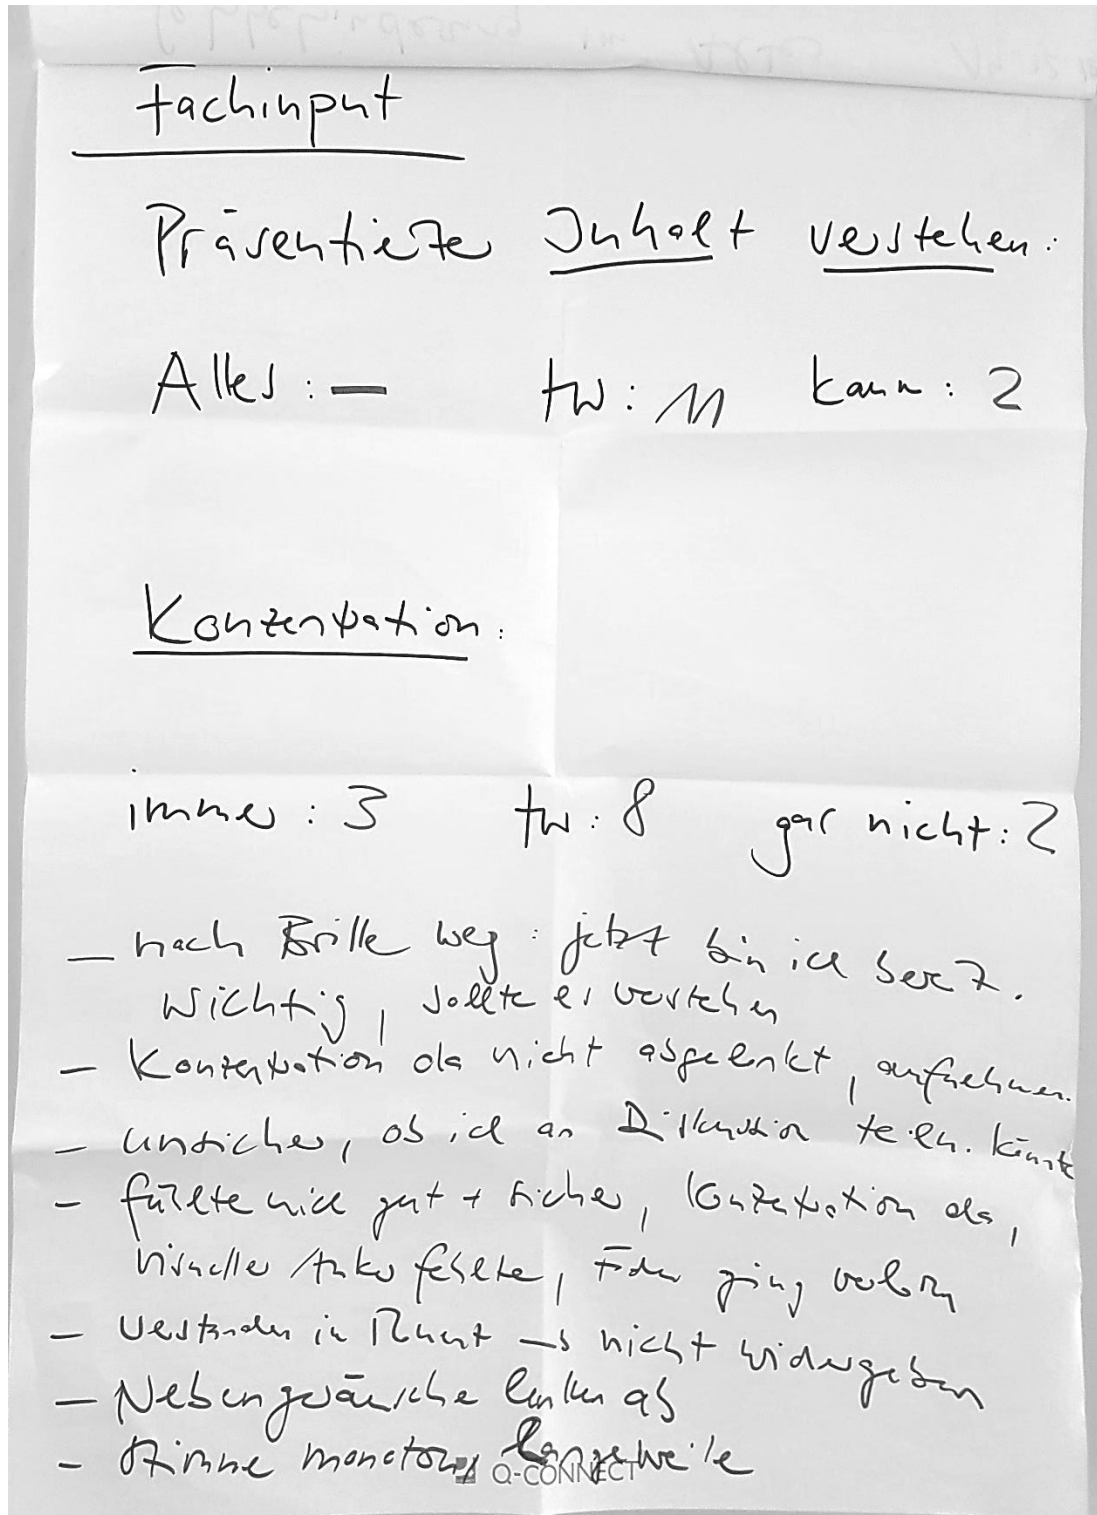 Fachinput
Präsentierte Inhalt verstehen:
Alles: — tw: 11 kaum: 2
Konzentration:
immer: 3 tw: 8 gar nicht: 2
— nach Brille weg: jetzt bin ich
wichtig, sollte es verstehen
— Konzentration da nicht abgelenkt, aufnehmen.
— unsicher, ob ich an Diskussion teiln. könnte
— fühlte mich gut + sicher, Konzentration da,
visueller Anker fehlte, Faden ging verloren
— Verstanden in → nicht widergeben
— Nebengeräusche lenken ab
— Stimme monoton, langeweile
Q-CONNECT